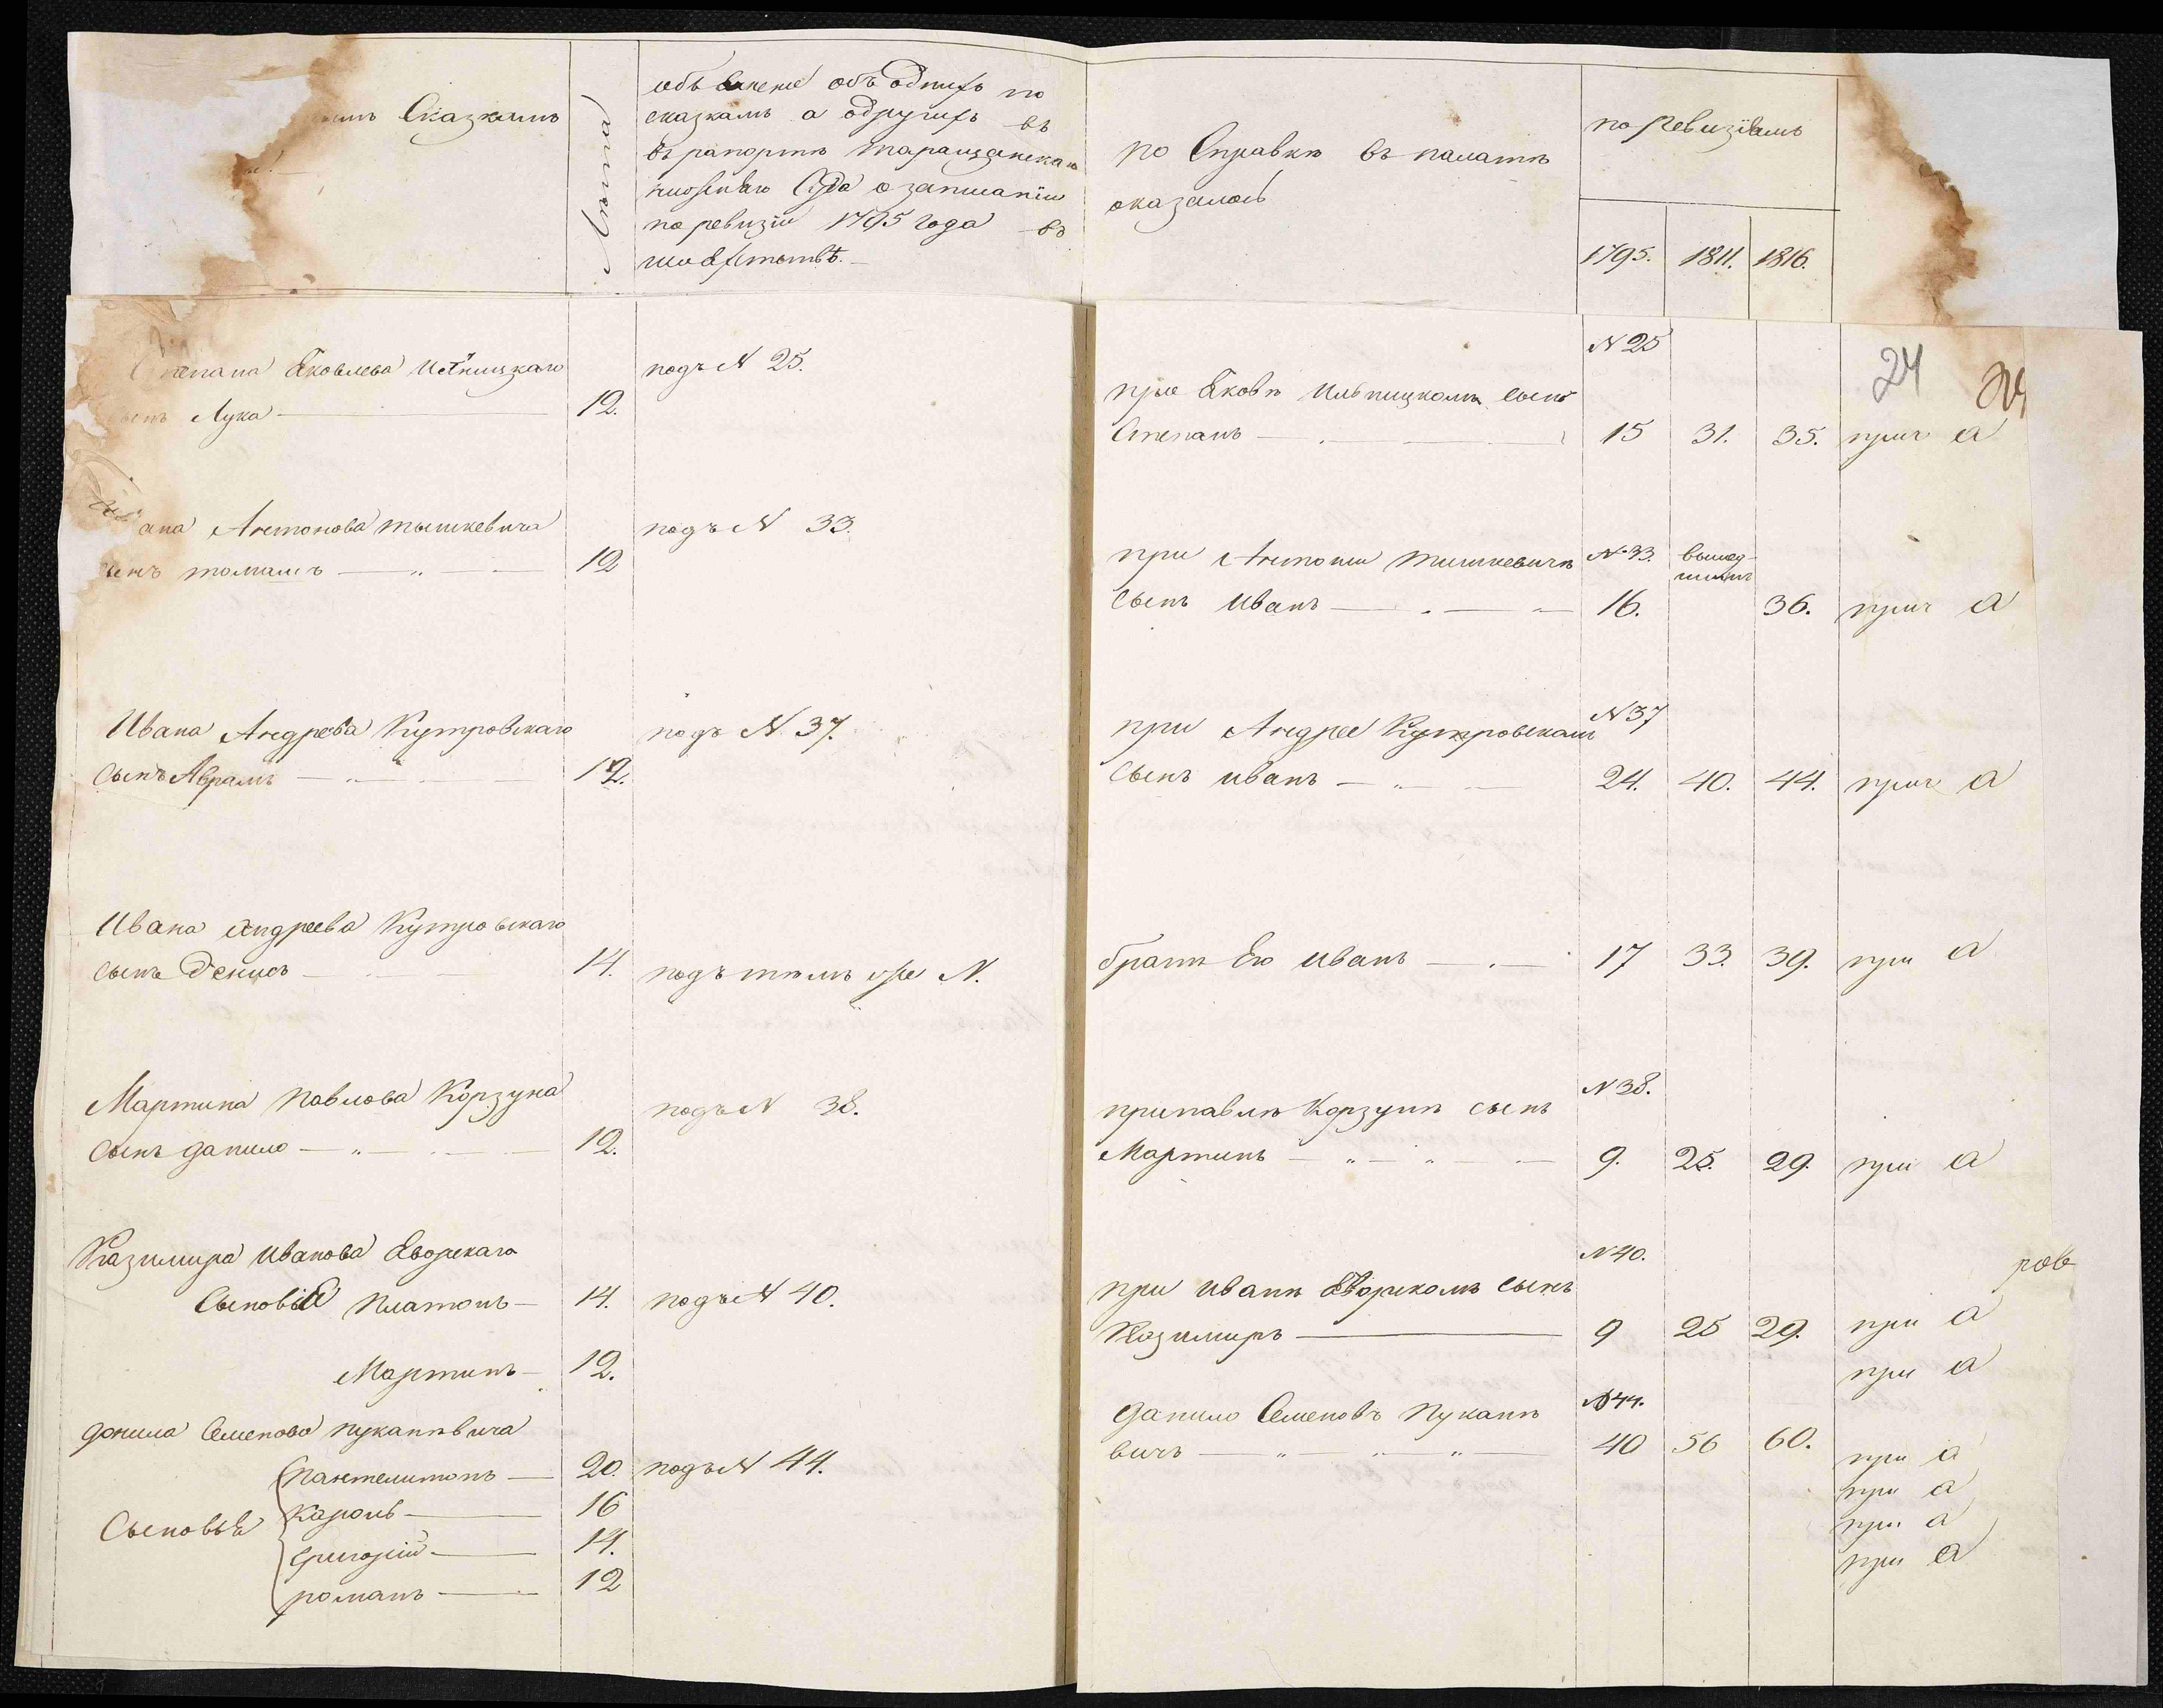 Сказкамъ
лета
объясненiе объ однихъ по
сказкамъ а одругихъ въ
въ рапортѣ таращанскаго
нижняго Суда о записанiи
по ревизiи 1795 года въ
шляхетствѣ.
по Справкѣ въ палатѣ
оказалось
по ревизiямъ
1795. 1811. 1816.
Степана Яковлева
сынъ Лука 12.
подъ N 25.
при Яковѣ Ильницкомъ сынъ
N 25
Степанъ 15 31. 35. прич а
24
Антонова тышкевича
сынъ томашъ 12
подъ N 33.
при Антонiи тишкевичѣ N 33. вышед-
шимъ
сынъ иванъ 16. 36. прич а
Ивана Андреева Кутровскаго
сынъ Аврамъ 12.
подъ N 37.
при Андрее Кутровскомъ N 37
сынъ иванъ 24. 40. 44. прич а
Ивана андреева Кутровскаго
сынъ денисъ 14.
подъ тѣмъ же N.
братъ Его иванъ 17 33. 39. при а
Мартина павлова Корзуна
сынъ данило 12.
подъ N 38.
N 38.
при павлѣ Корзунѣ сынъ
Мартинъ 9. 25. 29. при а
Казимира иванова Яворскаго
Сыновья платонъ 14.
подъ N 40.
Мартинъ 12.
N 40.
при иванѣ Яворскомъ сынъ
Казимиръ 9 25 29. при а
при а
данила Семенова пукантвича
Сыновья
пантелимонъ 20.
подъ N 44.
Кароль 16
Григорiй 14.
романъ 12
данило Семеновъ пукант N 44.
вичъ 40 56 60. при а
при а
при а
при а